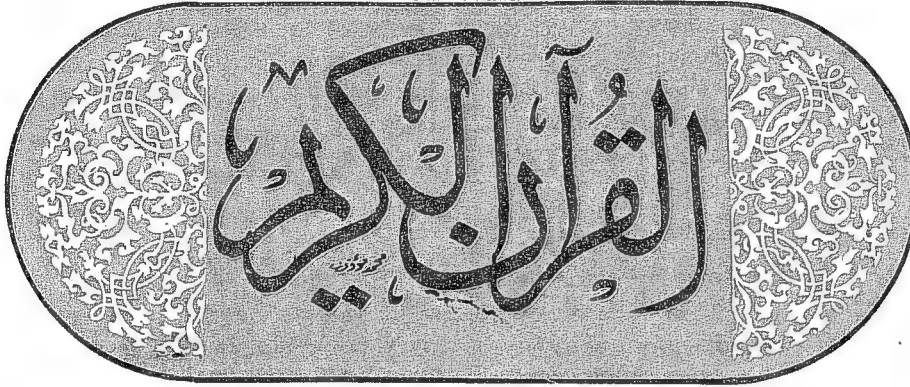 القُرآن الكريم